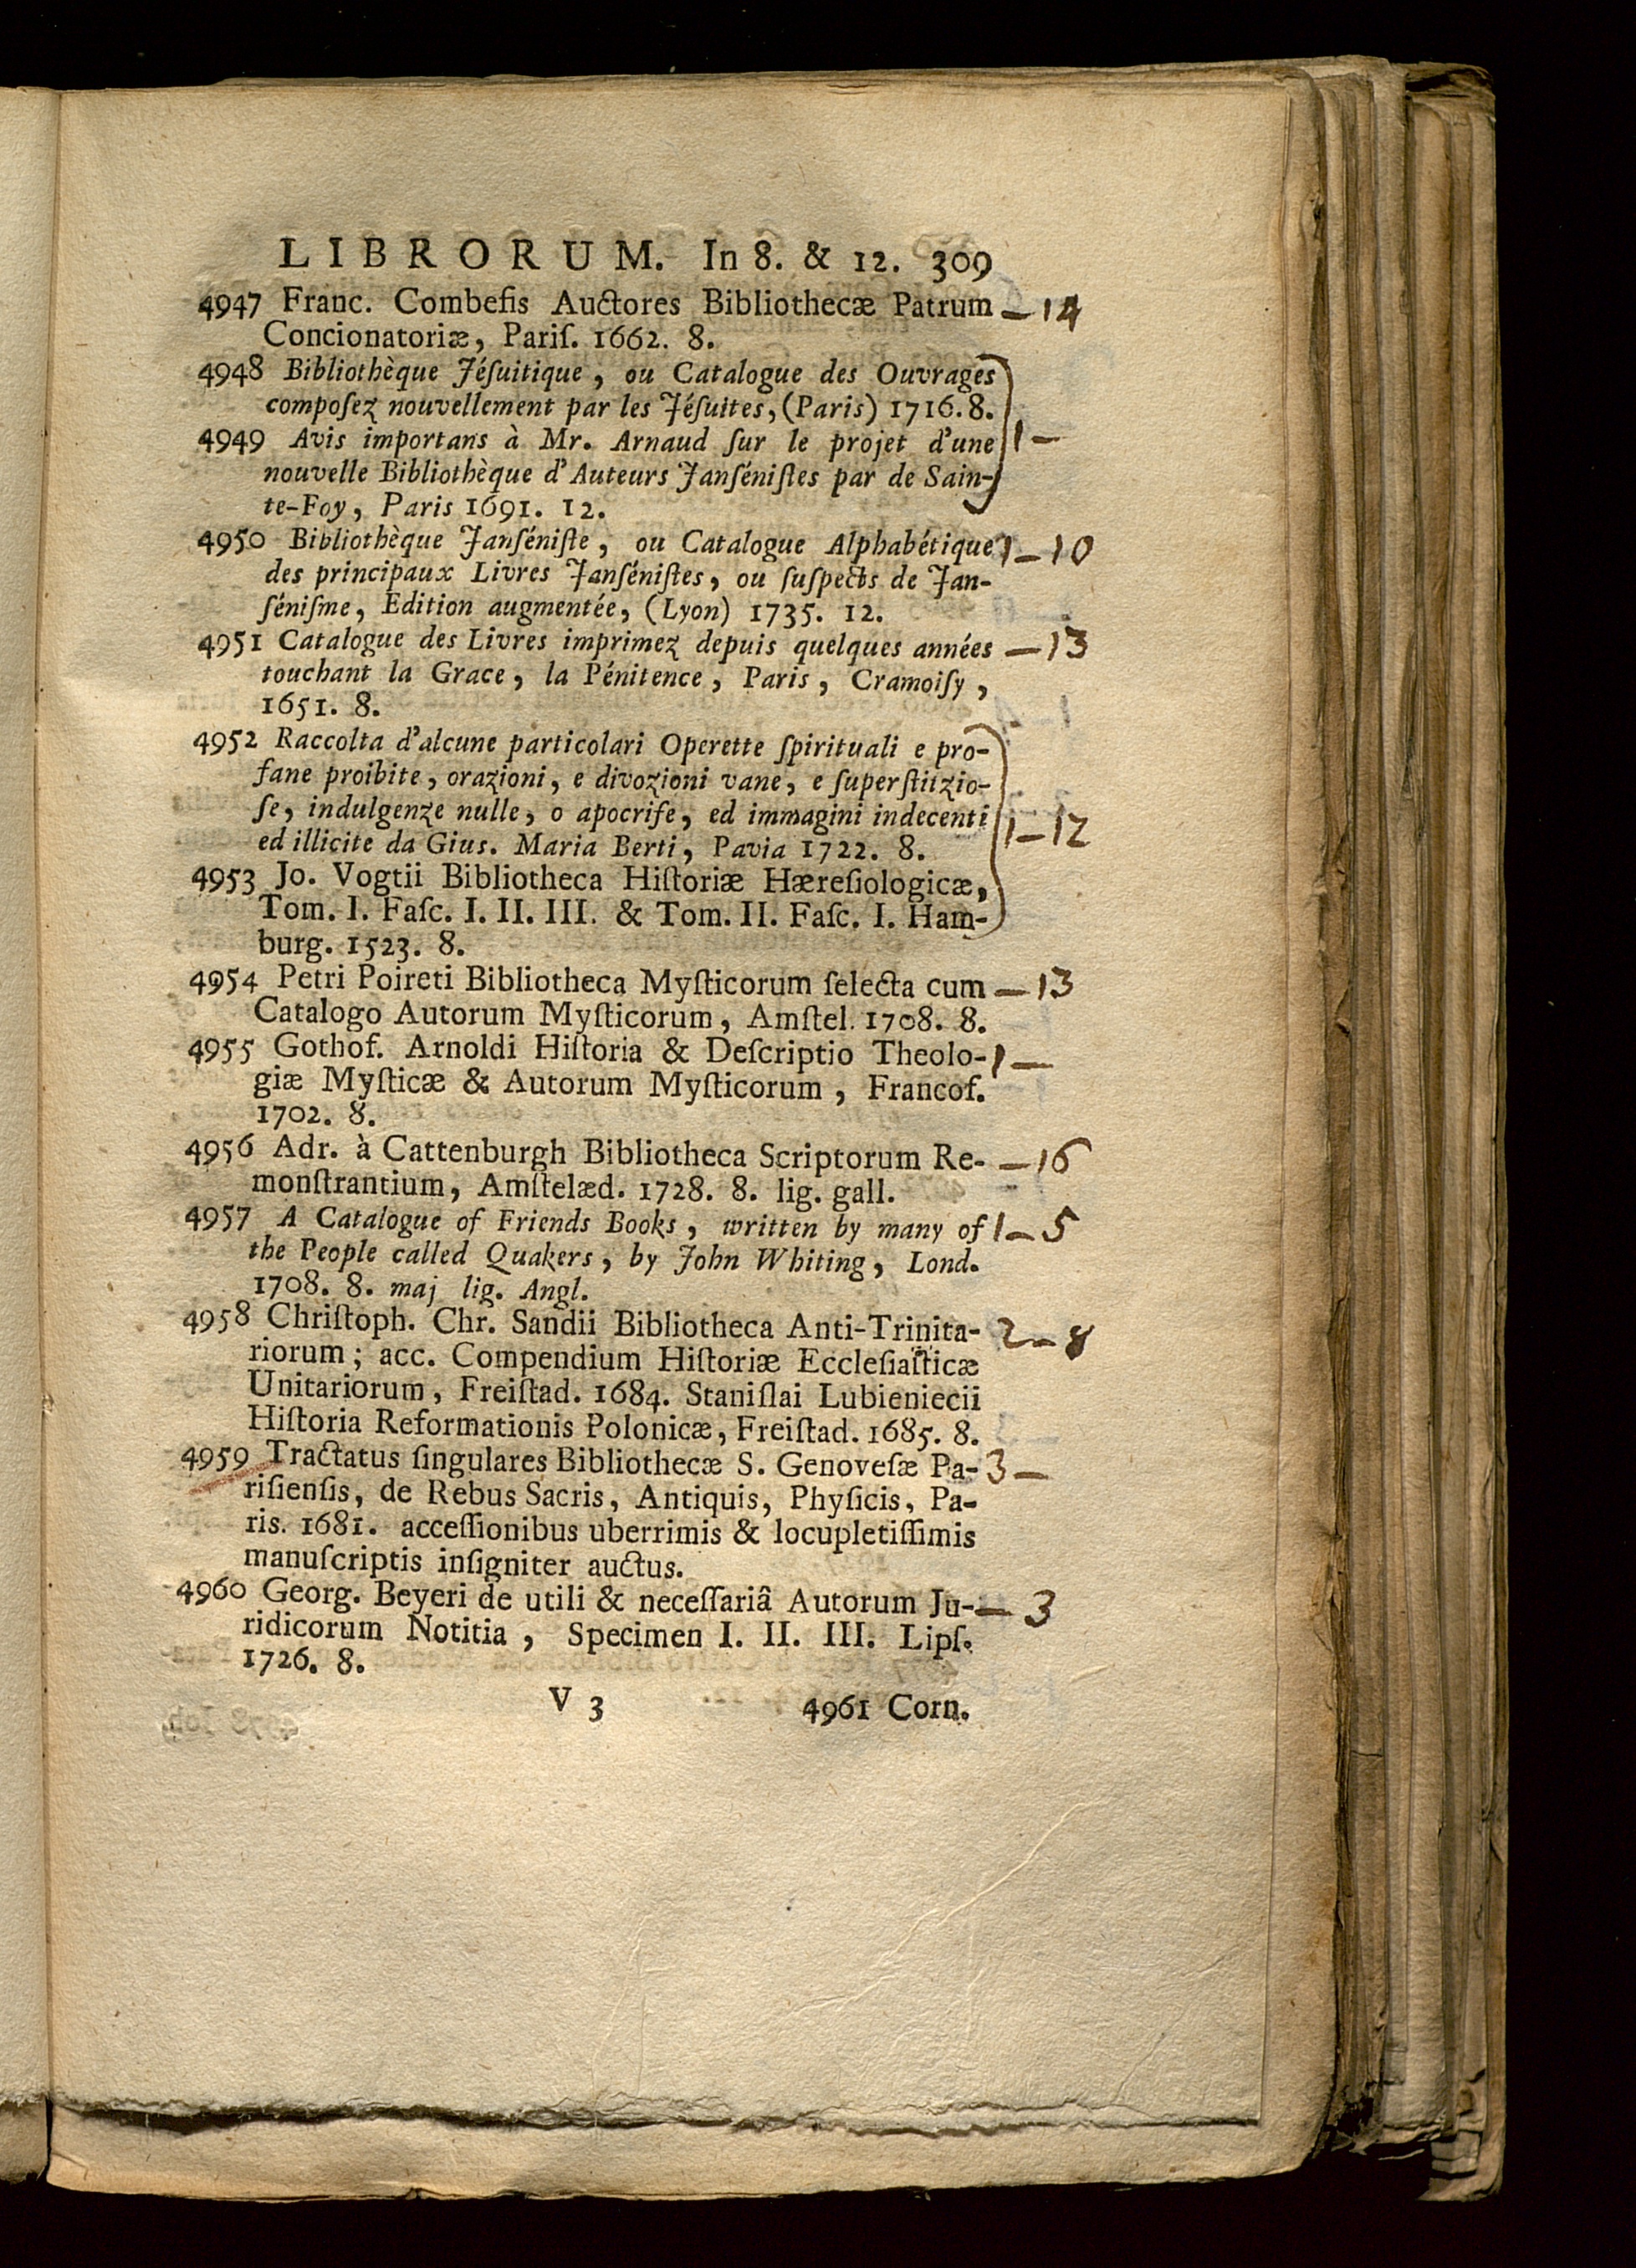 LIBRORUM. In 8. & 12. 309
4947 Franc. Combefis Auctores Bibliothecæ Patrum — 14
Concionatoriæ, Pariſ. 1662. 8.
4948 Bibliothèque Jéſuitique, ou Catalogue des Ouvrages
compoſez nouvellement par les Jéſuites, (Paris) 1716. 8.
4949 Avis importans à Mr. Arnaud ſur le projet d'une 1 —
nouvelle Bibliothèque d'Auteurs Janſéniſtes par de Sain-
te-Foy, Paris 1691. 12.
4950 Bibliothèque Janſéniſte, ou Catalogue Alphabétique 1 — 10
des principaux Livres Janſéniſtes, ou ſuſpects de Jan-
ſéniſme, Edition augmentée, (Lyon) 1735. 12.
4951 Catalogue des Livres imprimez depuis quelques années — 13
touchant la Grace, la Pénitence, Paris, Cramoiſy,
1651. 8.
4952 Raccolta d'alcune particolari Operette ſpirituali e pro-
fane proibite, orazioni, e divozioni vane, e ſuperſtizio-
ſe, indulgenze nulle, o apocrife, ed immagini indecenti
ed illicite da Gius. Maria Berti, Pavia 1722. 8. 1 — 12
4953 Jo. Vogtii Bibliotheca Hiſtoriæ Hæreſiologicæ,
Tom. I. Faſc. I. II. III. & Tom. II. Faſc. I. Ham-
burg. 1523. 8.
4954 Petri Poireti Bibliotheca Myſticorum ſelecta cum — 13
Catalogo Autorum Myſticorum, Amſtel. 1708. 8.
4955 Gothof. Arnoldi Hiſtoria & Deſcriptio Theolo- 1 —
giæ Myſticæ & Autorum Myſticorum, Francof.
1702. 8.
4956 Adr. à Cattenburgh Bibliotheca Scriptorum Re- — 16
monſtrantium, Amſtelæd. 1728. 8. lig. gall.
4957 A Catalogue of Friends Books, written by many of 1 — 5
the People called Quakers, by John Whiting, Lond.
1708. 8. maj lig. Angl.
4958 Chriſtoph. Chr. Sandii Bibliotheca Anti-Trinita- 2 — 8
riorum; acc. Compendium Hiſtoriæ Eccleſiaſticæ
Unitariorum, Freiſtad. 1684. Staniſlai Lubieniecii
Hiſtoria Reformationis Polonicæ, Freiſtad. 1685. 8.
4959 Tractatus ſingulares Bibliothecæ S. Genoveſæ Pa- 3 —
riſienſis, de Rebus Sacris, Antiquis, Phyſicis, Pa-
ris. 1681. acceſſionibus uberrimis & locupletiſſimis
manuſcriptis inſigniter auctus.
4960 Georg. Beyeri de utili & neceſſariâ Autorum Ju- — 3
ridicorum Notitia, Specimen I. II. III. Lipſ.
1726. 8.
V 3 4961 Corn.